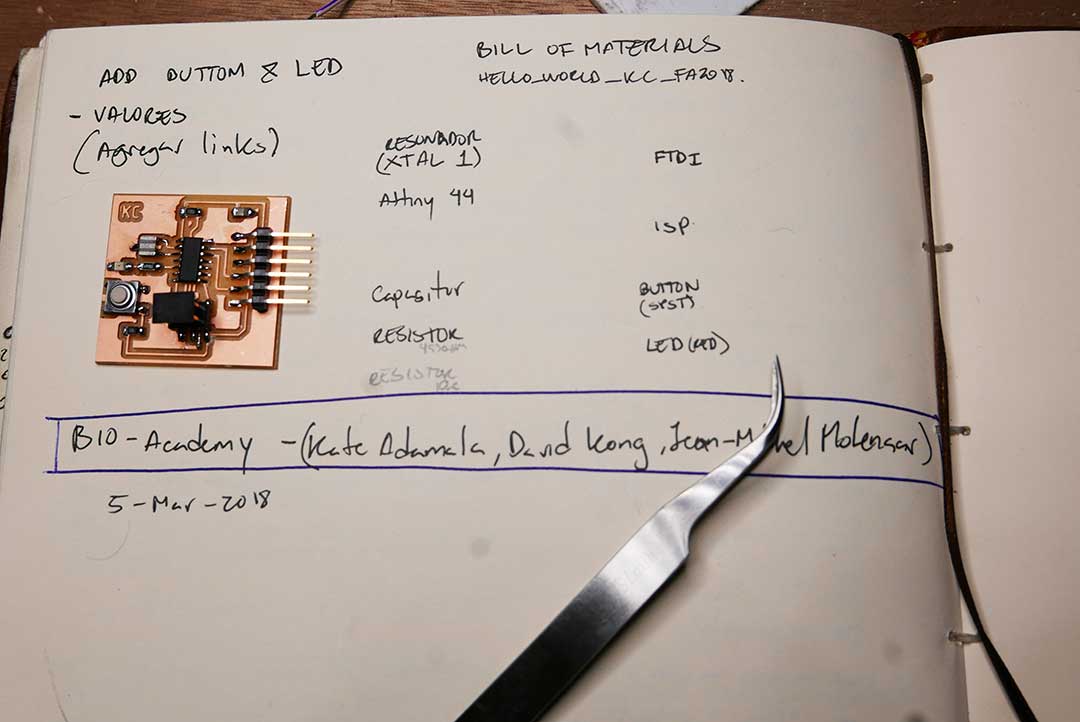 ADD BUTTOM & LED
- VALORES
(Agregar links)
KC
BILL OF MATERIALS
HELLO_WORLD_KC_FA2018.
RESONADOR
(XTAL 1)
Attiny 44
Capasitor
RESISTOR
499ohm
RESISTOR
10k
FTDI
ISP
BUTTON
(SPST)
LED (RED)
BIO-Academy - (Kate Adamala, David Kong, Jean-Michel Molenaar)
5-Mar-2018